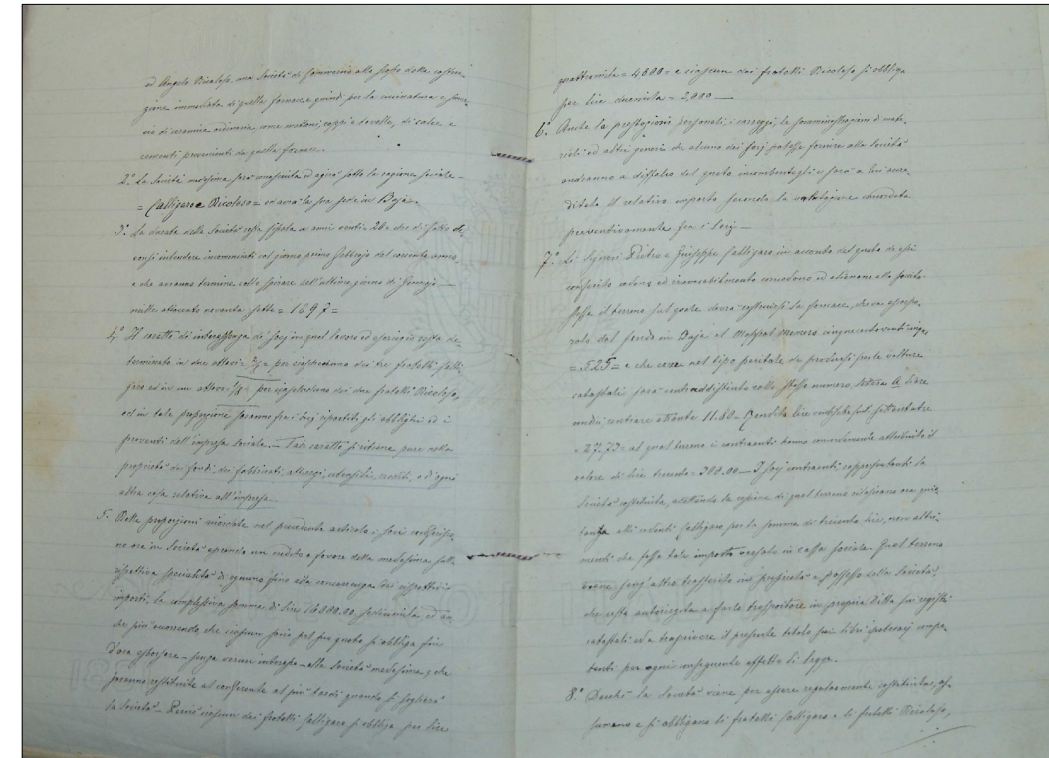 ed Angelo Nicoloso, una Società di Commercio allo scopo della costru-
zione immediata di quella fornace, e quindi per la cucinatura e smer-
cio di ceramica ordinaria, come mattoni, coppi e tavelle, di calce e
cementi provenienti da quella fornace.
2.° La Società medesima sarà conosciuta ed agirà sotto la ragione sociale
= Calligaro e Nicoloso = ed avrà la sua sede in Buja.
3.° La durata della Società resta fissata a anni venti = 20 = che di fatto de-
vonsi intendere incominciati col giorno primo Febbrajo del corrente anno
e che avranno termine collo spirare dell'ultimo giorno di Gennajo
mille ottocento novanta sette = 1897 =
4.° Il carato di interessenza dei socj in quel lavoro ed esercizio resta de-
terminato in due ottavi = 2/8 = per ciascheduno dei tre fratelli Calli-
garo ed in un ottavo 1/8 = per ciascheduno dei due fratelli Nicoloso,
ed in tale proporzione saranno fra i socj ripartiti gli obblighi ed i
proventi dell'impresa sociale. Tale caratto si ritiene pure nella
proprietà dei fondi, dei fabbricati, attrezzi, utensili, crediti, e d'ogni
altra cosa relativa all'impresa.
5.° Nelle proporzioni indicate nel precedente articolo i socj
ora in Società aprendo un credito a favore della medesima sulla
rispettiva specialità di ognuno fino alla concorrenza dei rispettivi
importi, la complessiva somma di lire 16000.00 sedicimila, ed an-
che più occorrendo, che ciascun socio pel suo quoto si obbliga fin
d'ora esborsare senza verun interesse alla Società medesima, e che
saranno restituite al conferente al più tardi quando si scioglierà
la Società. Perciò ciascun dei fratelli Calligaro si obbliga per lire
quattromila = 4,000 = e ciascun dei fratelli Nicoloso si obbliga
per lire duemila = 2,000
6.° Anche le prestazioni personali, i carreggi, le somministrazioni di mate-
riali ed altri generi che alcuno dei socj potesse fornire alla Società
andranno a diffalco del quoto incombentegli e sarà a lui accre-
ditato il relativo importo, secondo la valutazione concordata
preventivamente fra i socj.
7.° Li Signori Pietro e Giuseppe Calligaro in acconto del quoto da essi
conferito cedono ed irrevocabilmente concedono ed alienano alla Società
stessa il terreno sul quale dovrà costruirsi la fornace, da
del fondo in Buja al Mappal numero cinquecentoventicinque
= 525 = e che come nel tipo peritale da prodursi per le volture
catastali sarà contraddistinto collo stesso numero, lettera a,
centiare ottanta 11.80 = Rendita lire
= 27.73 = al qual terreno i contraenti hanno concordemente attribuito il
valore di lire trecento = 300.00 = I socj contraenti rappresentanti la
Società costituita, accettando la cessione di quel terreno rilasciano ora quie-
tanza alli cedenti Calligaro per la somma di trecento lire, non altri-
menti che se fosse tale importo versato in cassa sociale. Quel terreno
viene senz'altro trasferito in proprietà e possesso della Società,
che resta autorizzata a farlo trasportare in propria Ditta sui registri
catastali ed a trascrivere il presente titolo sui libri ipotecarj compe-
tenti per ogni conseguente effetto di legge.
8.° Perché la Società viene per essere regolarmente costituita, as-
sumono e si obbligano li fratelli Calligaro e li fratelli Nicoloso,